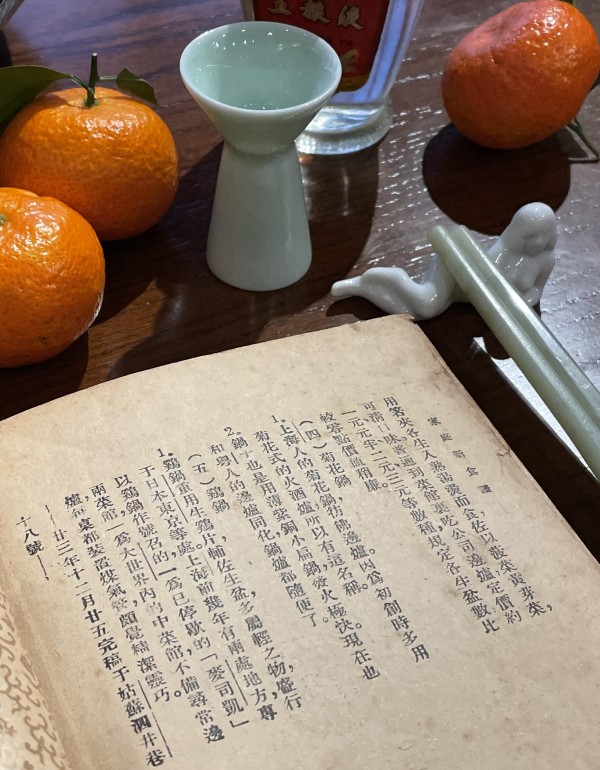 五粮液
家庭新食譜
用筷夾各生入熱湯燙而食，佐以菠菜黃芽菜，
可清口味，普通到菜館裏吃公司邊爐，定價約
一元、元半、二元、三元等數種，規定各生盆數，比
較零點價值稍廉。
（四）菊花鍋
1. 上海人的菊花鍋，彷彿邊爐。因為初創時多用
菊花式的火酒爐，所以有這名稱。
2. 鍋子也是用薄紫銅小扁鍋，發火極快。現在也
和粵人的邊爐同化，鍋爐都隨便了。
（五）鷄鍋
1. 鷄鍋重用生鷄片，輔佐生盆，多屬輕之物，盛行
于日本東京等處。上海前幾年有兩處地方，專
以鷄鍋作號召的，一為已停歇的「麥司凱」
兩菜館，一為大世界內的中菜館，不備尋常邊
爐，桌都裝置煤氣管，頗覺精潔靈巧。
——廿三年十二月廿五完稿于姑蘇泗井巷
十八號——